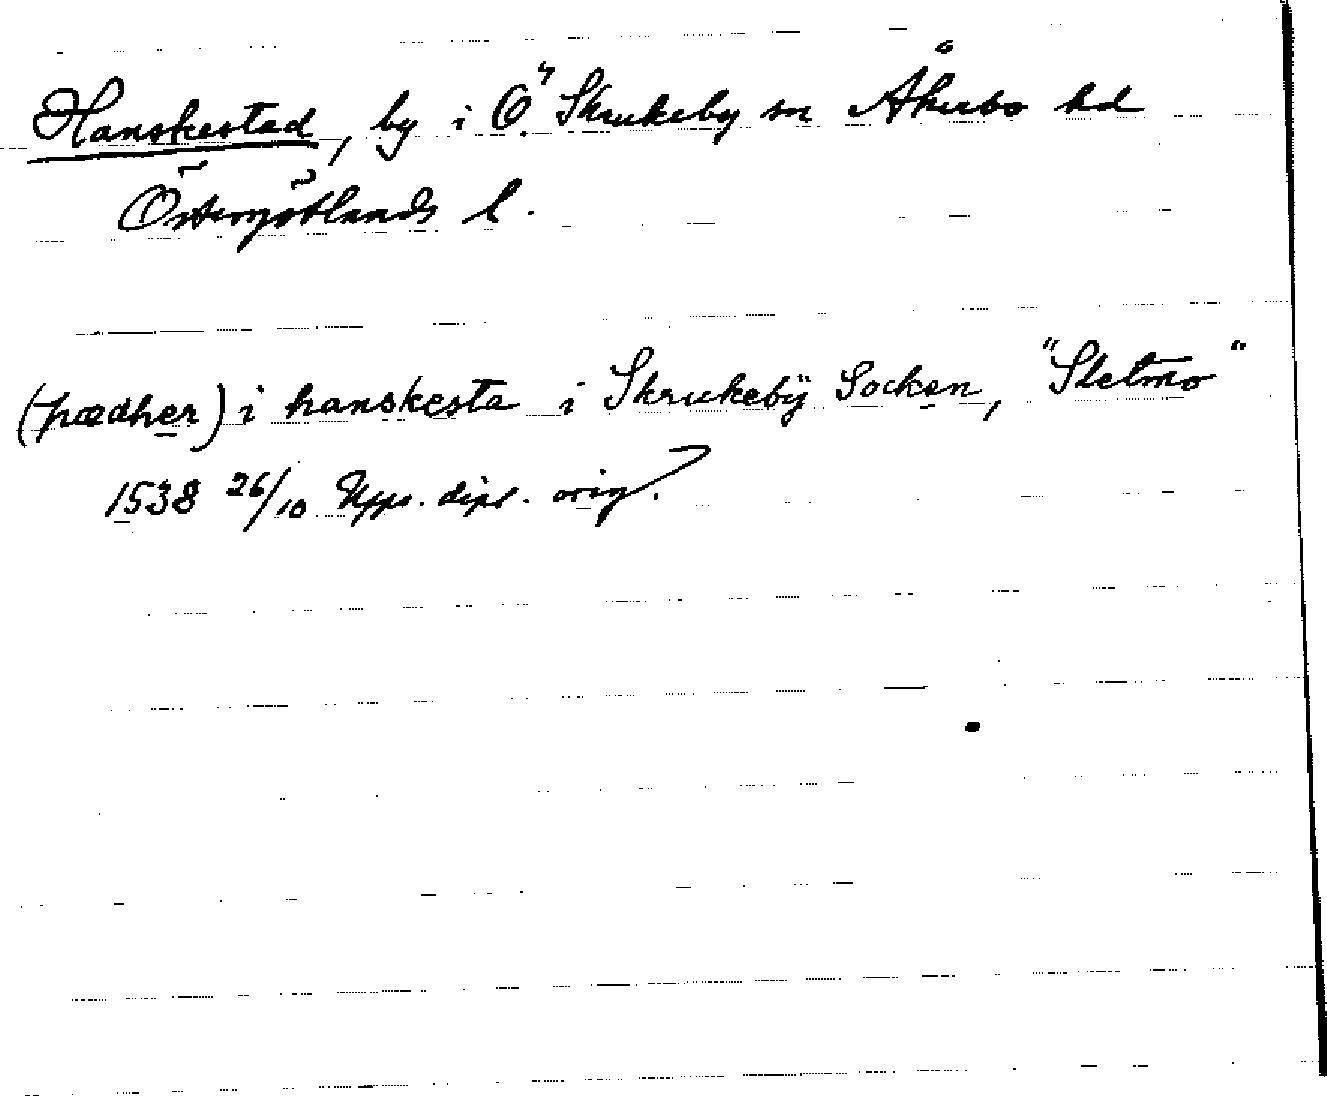 Hanskestad, by i Ö. Skrukeby sn Åkerbo hd
Östergötlands l.
(pædher) i hanskesta i Skrukebÿ Socken, "Sletmo"
1538 26/10 Upps. dipl. orig.